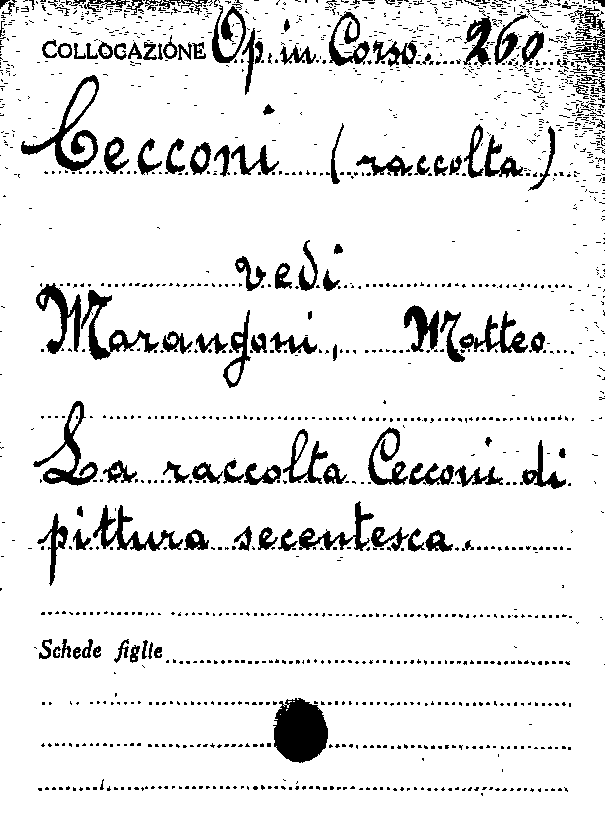 COLLOCAZIONE Op. in Corso. 260
Cecconi (raccolta)
vedi
Marangoni, Matteo
La raccolta Cecconi di
pittura secentesca.
Schede figlie